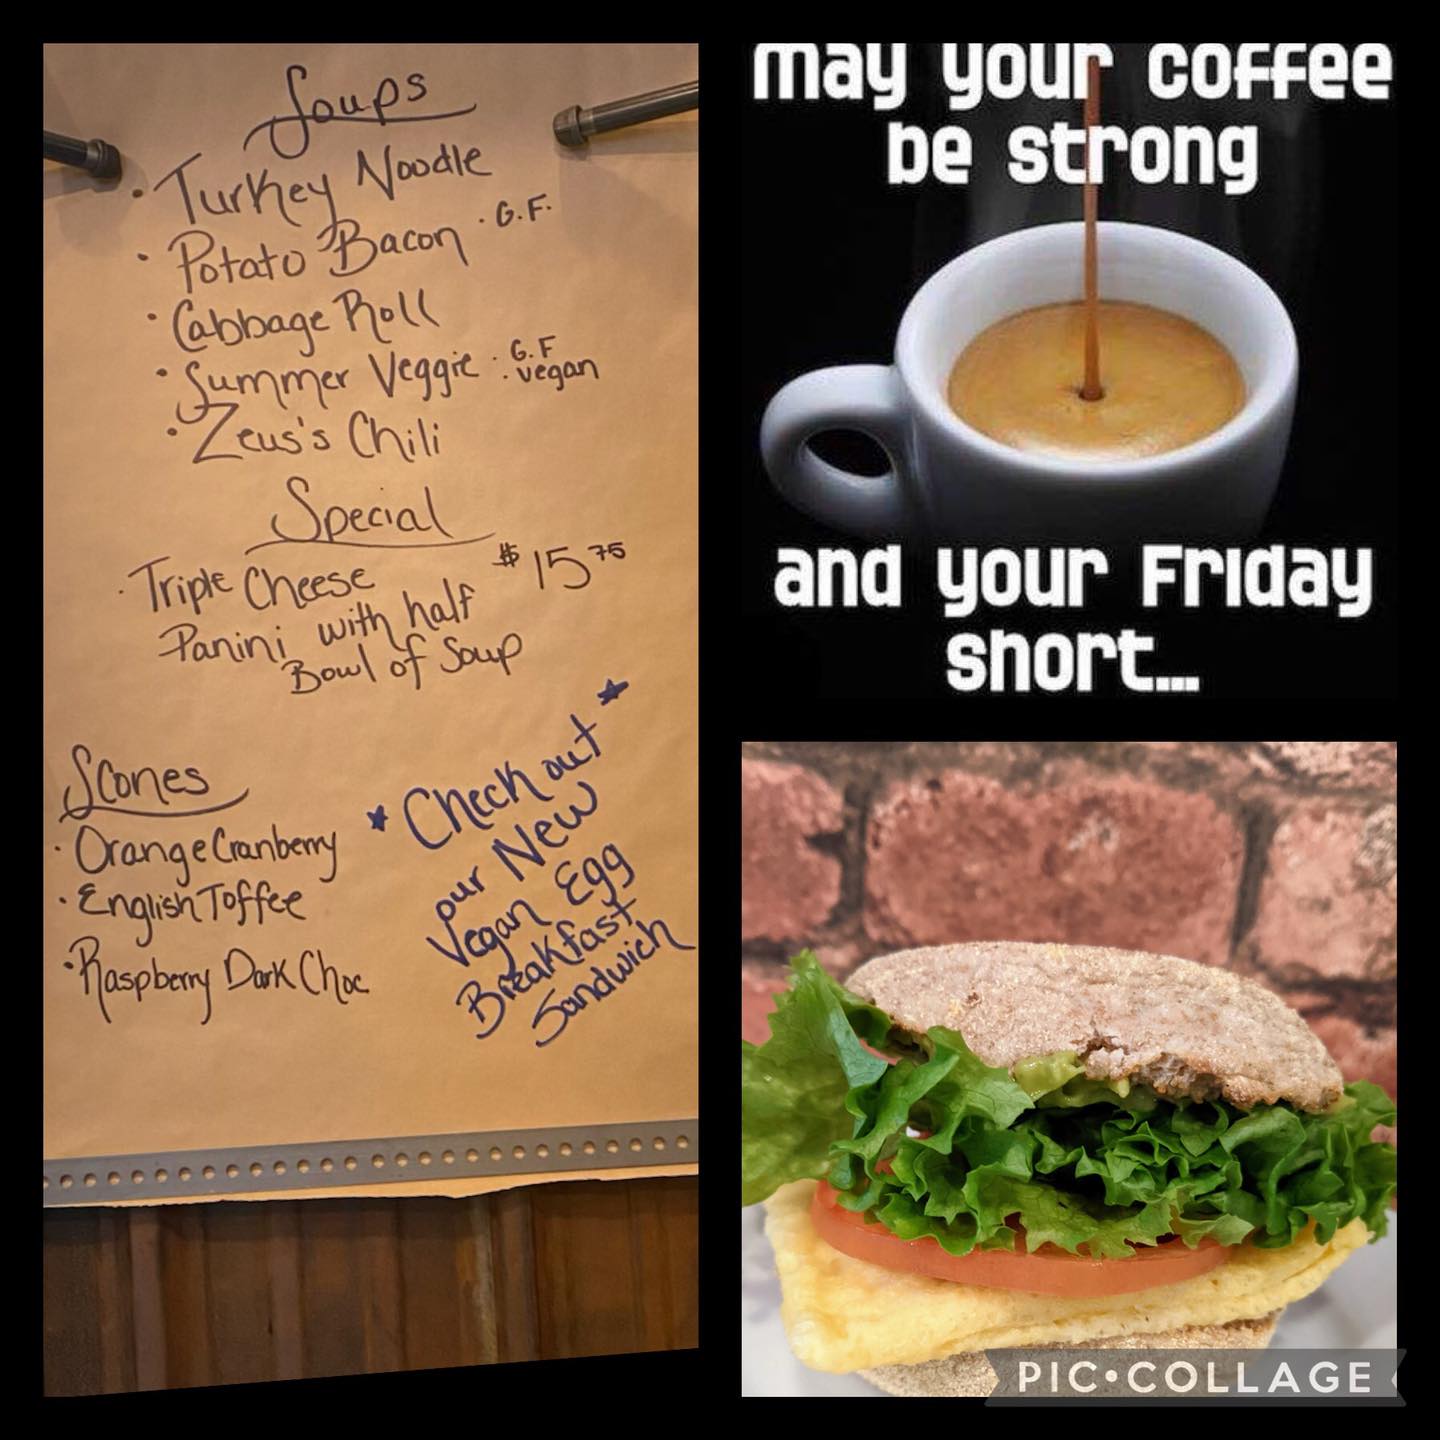 Soups
• Turkey Noodle
• Potato Bacon • G.F.
• Cabbage Roll
• Summer Veggie • G.F
• vegan
• Zeus's Chili
Special
• Triple Cheese $15 75
Panini with half
Bowl of Soup
Scones
• Orange Cranberry
• English Toffee
• Raspberry Dark Choc
Check out
our New
Vegan Egg
Breakfast
Sandwich
may your coffee
be strong
and your Friday
short...
PIC•COLLAGE